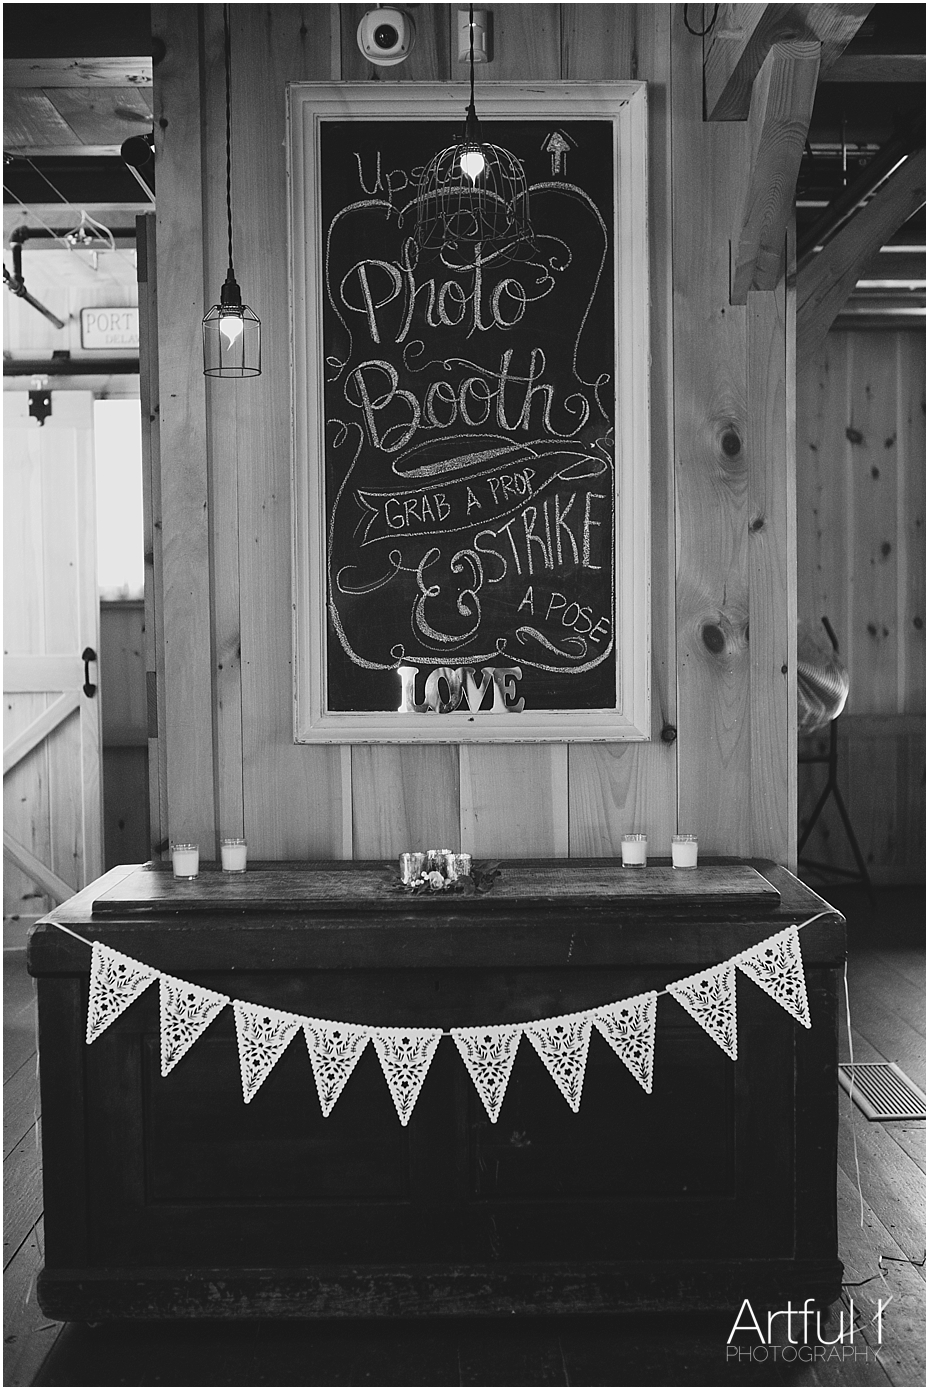 Upstairs
Photo
Booth
GRAB A PROP
& STRIKE
A POSE
LOVE
PORT
Artful
PHOTOGRAPHY